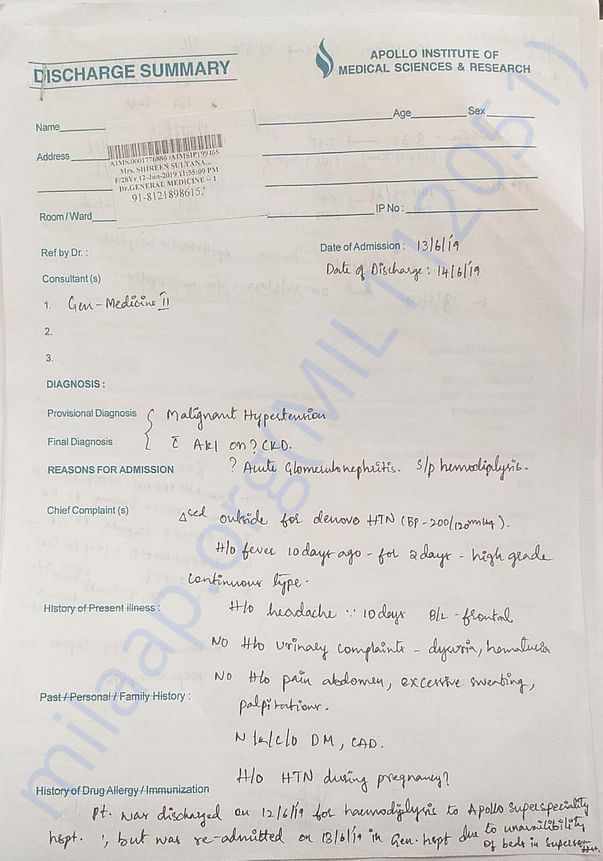 DISCHARGE SUMMARY
APOLLO INSTITUTE OF
MEDICAL SCIENCES & RESEARCH
Age Sex
Name
Address
AIMS.0001776886 /AIMSIP199465
Mrs. SHIREEN SULTANA..
F/28Y r 12-Jun-2019 11:55:09 PM
Dr.GENERAL MEDICINE - 1
91-8121898615.
Room / Ward IP No :
Ref by Dr. : Date of Admission : 13/6/19
Date of Discharge : 14/6/19
Consultant (s)
1. Gen-Medicine II
2.
3.
DIAGNOSIS :
Provisional Diagnosis Malignant Hypertension
Final Diagnosis c̄ AKI on ? CKD.
REASONS FOR ADMISSION ? Acute Glomerulonephritis. S/p hemodialysis.
Chief Complaint (s) Δsed outside for denovo HTN (BP-200/120mmHg).
H/o fever 10 days ago - for 2 days - high grade
continuous type.
History of Present illness : H/o headache ∵ 10 days B/L - frontal
NO H/o urinary complaints - dysuria, hematuria
NO H/o pain abdomen, excessive sweating,
Past / Personal / Family History : palpitations.
N/k/c/o DM, CAD.
H/o HTN during pregnancy?
History of Drug Allergy / Immunization
Pt. was discharged on 12/6/19 for haemodialysis to Apollo Superspeciality
hspt. ; but was re-admitted on 13/6/19 in Gen. hspt due to unavailibility
of beds in Superspe hspt.
milaap.org(MIL1112051)